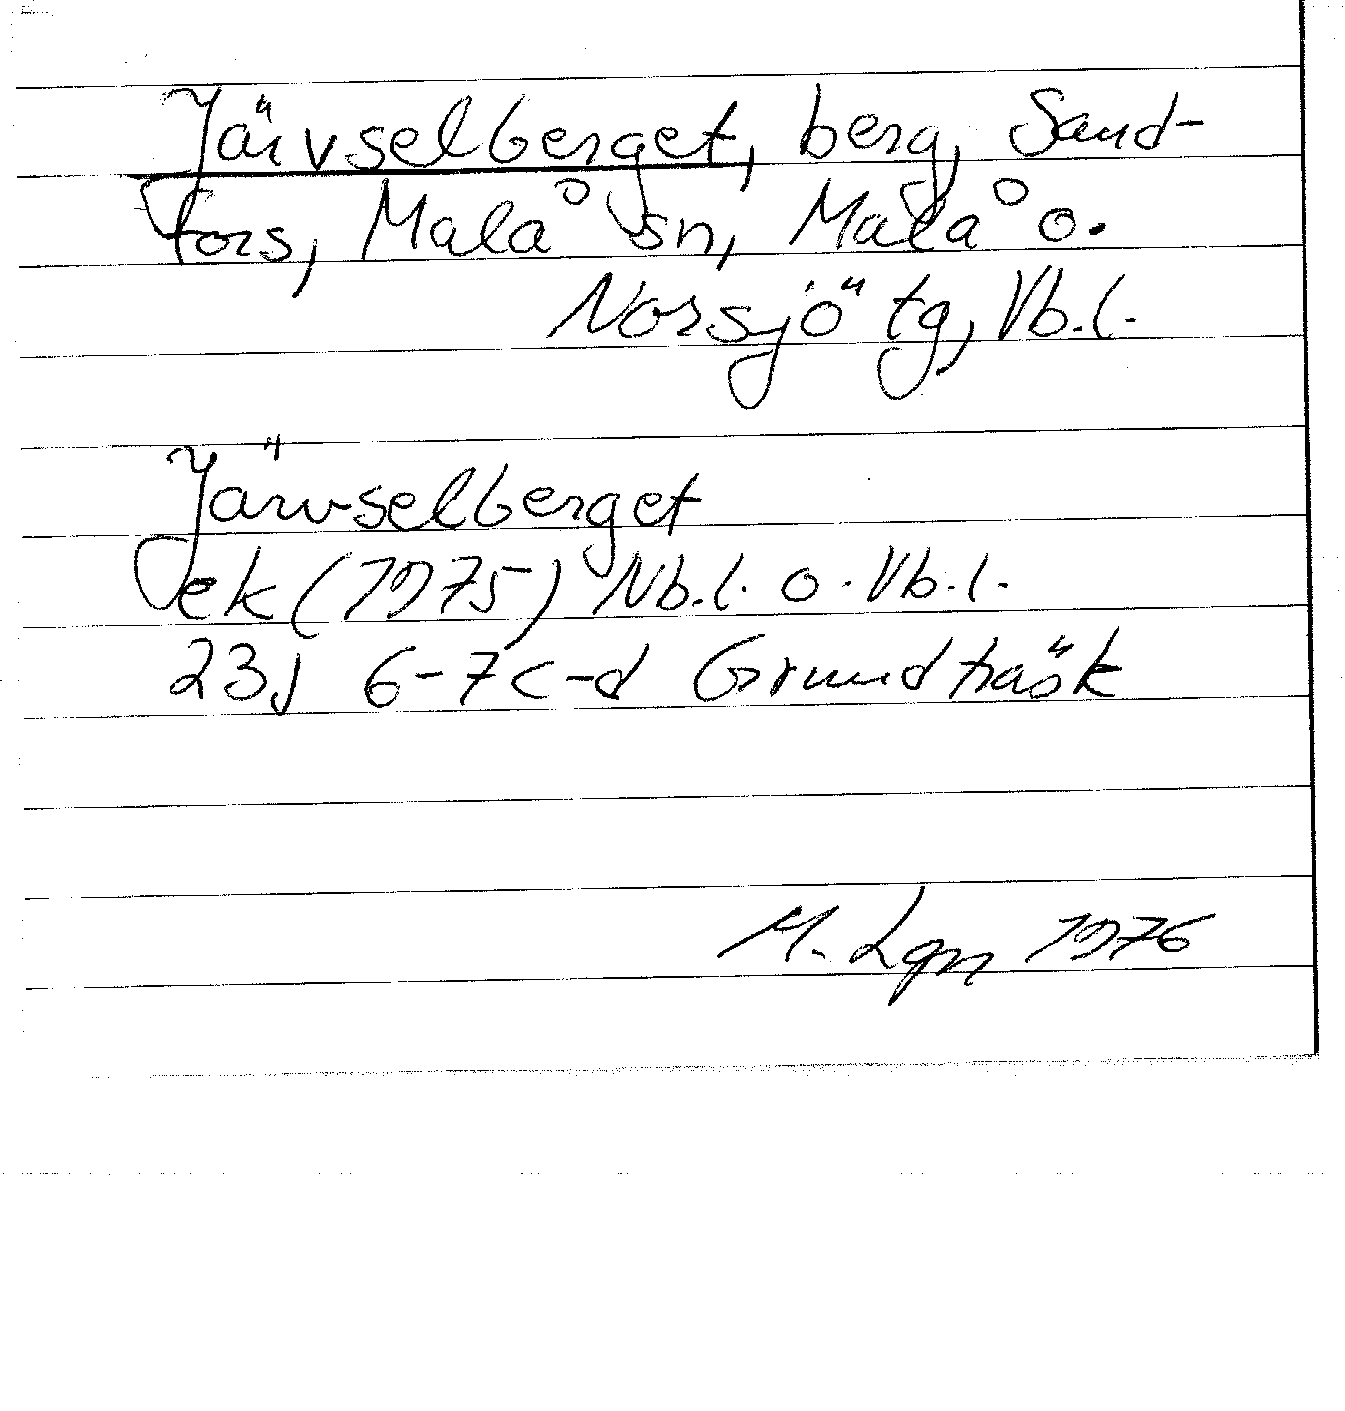 Järvselberget, berg, Sand-
fors, Malå sn, Malå o.
Norsjö tg, Vb.l.
Järvselberget
ek (1975) Nb.l. o. Vb.l.
23J 6-7c-d Grundträsk
M. Lgn 1976